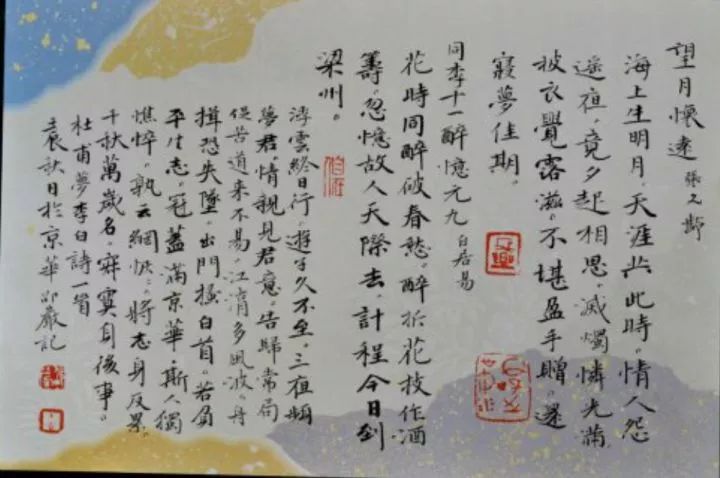 望月懷遠 張九齡
海上生明月，天涯共此時。情人怨
遥夜，竟夕起相思。滅燭憐光滿
披衣覺露滋。不堪盈手贈。還
寢夢佳期。
同李十一醉憶元九 白居易
花時同醉破春愁。醉折花枝作酒
籌。忽憶故人天際去，計程今日到
梁州。
浮雲終日行，遊子久不至。三夜頻
夢君，情親見君意。告歸常局
促苦道来不易。江湖多風波。舟
楫恐失墜。出門搔白首。若負
平生志。冠蓋滿京華，斯人獨
憔悴。孰云網恢恢，将老身反累。
千秋萬歲名，寂寞身後事。
杜甫夢李白詩一首
壬辰秋日於京華 嚴記